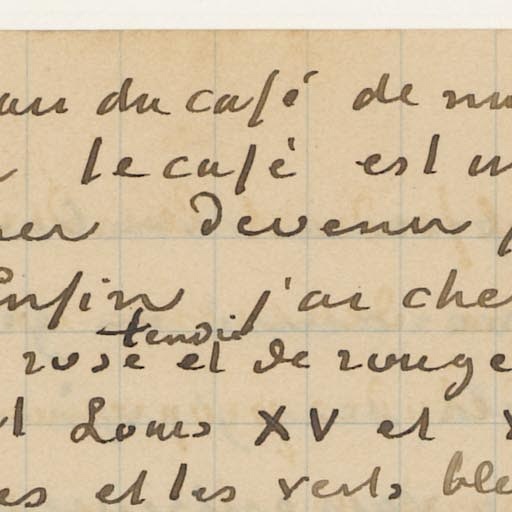 au du café de nu
le café est un
ner devenir
Enfin j'ai che
tendre
rose et de rouge
et Louis XV et
es et les verts ble